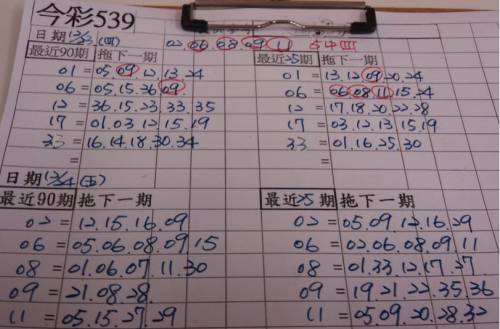 今彩539
日期12/3(四) 02.06.08.09.11 5中Ⅲ
最近90期 拖下一期 最近25期 拖下一期
01=05.09.12.13.24 01=13.12.09.20.24
06=05.15.36.09 06=06.08.11.15.24
12=36.15.23.33.35 12=17.18.20.22.28
17=01.03.12.15.19 17=03.12.13.15.19
33=16.14.18.30.34 33=01.16.25.30
= =
日期12/4(五)
最近90期 拖下一期 最近25期 拖下一期
02=12.15.16.09 02=05.09.12.16.29
06=05.06.08.09.15 06=02.06.08.09.11
08=01.06.07.11.30 08=01.33.12.17.27
09=21.08.28. 09=19.21.22.35.36
11=05.15.27.29 11=05.09.20.28.32